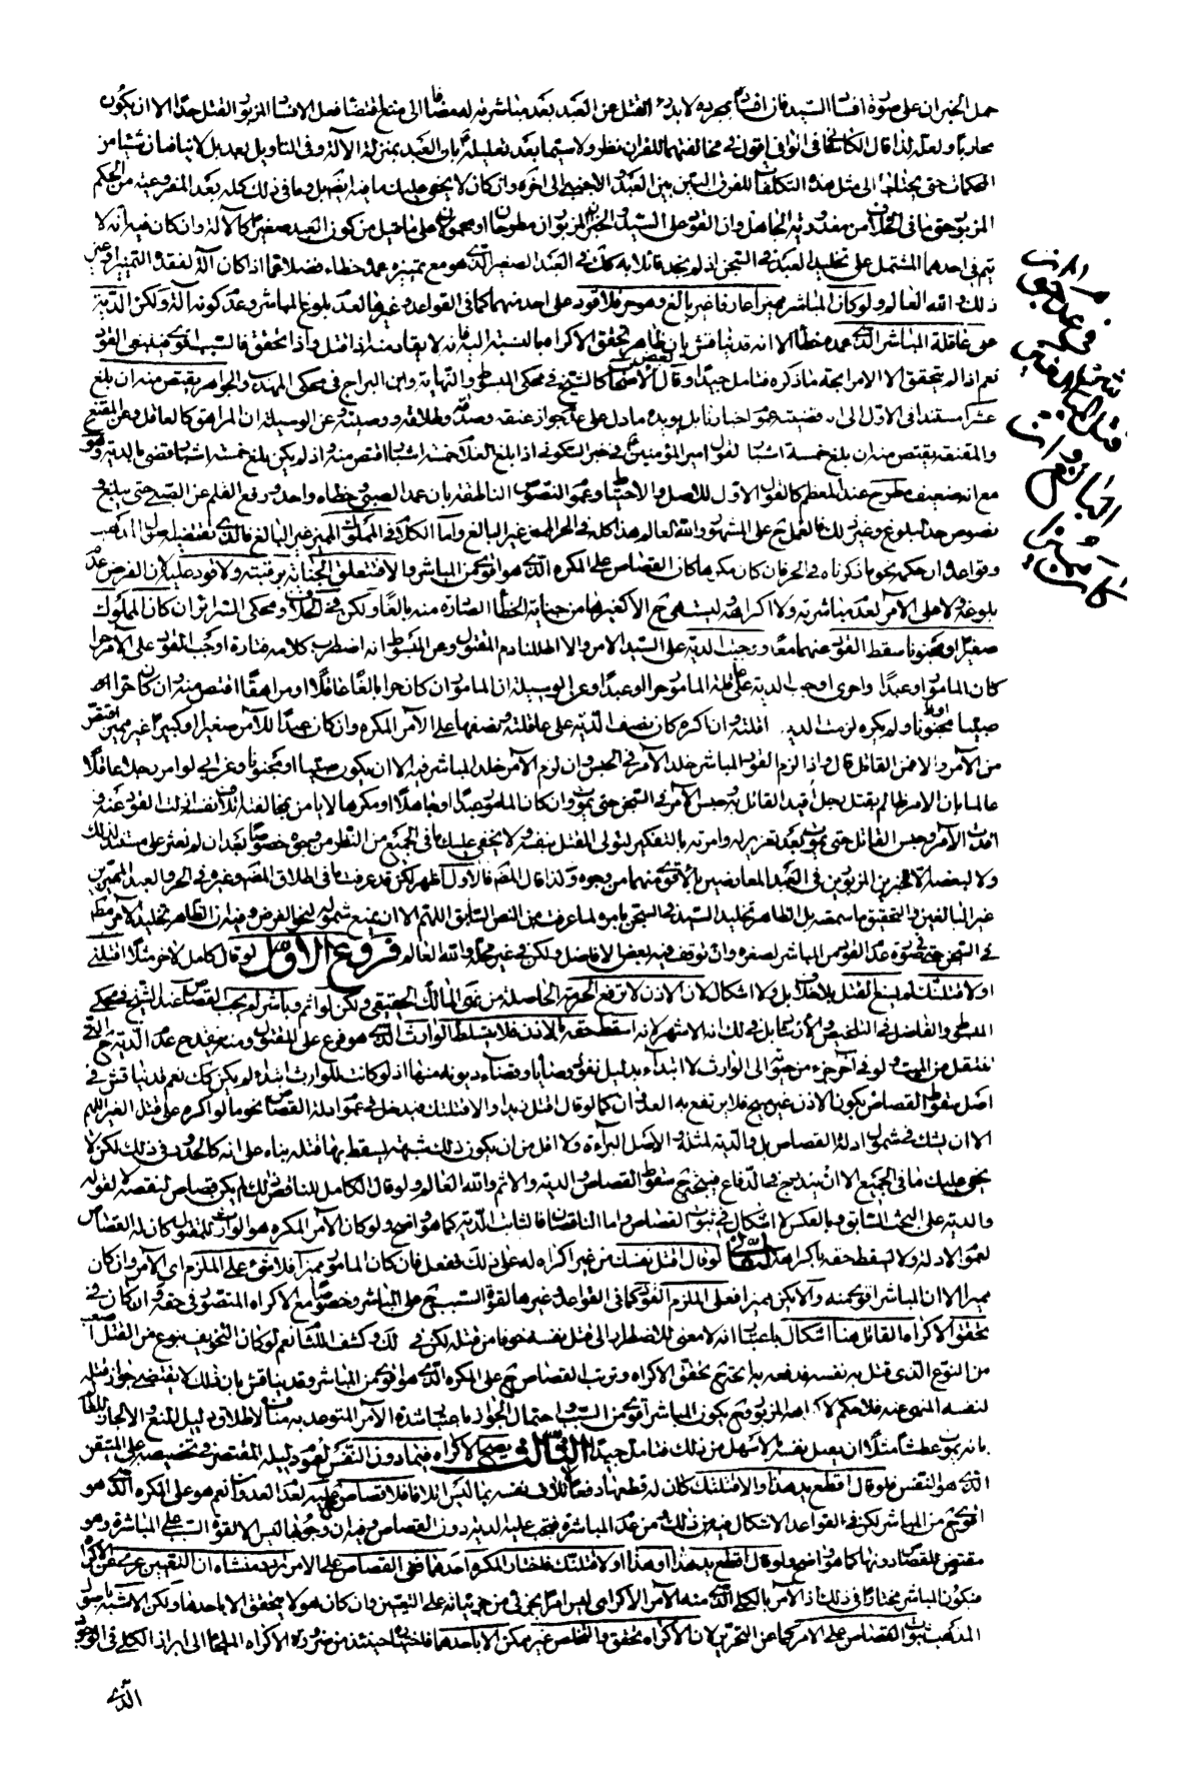 حمل الخبران على صورة افساد السيد فان افساده بمجرده لا يدرء القتل عن العبد بعد مباشرته له مضافا الى منع اقتضاء فعل الافساد المزبور القتل حدا الا ان يكون
محاربا ولعله لذا قال الكاشانى فى الوافى اقول فى مخالفتهما للقران نظر ولا سيما بعد تعليله بان العبد بمنزلة الآلة وفى التاويل بعد بل لا ينافيان شيئا من
المحكمات حتى يحتاجا الى مثل هذه التكلفات للفرق البين بين العبد والاجنبى الى اخره وان كان لا يخفى عليك ما فيه ايضا بل وما فى ذلك كله بعد المفروغية من الحكم
المزبور حتى ما فى الخلاف من معذورية الجاهل وان القود على السيد والخبران المزبوران مطروحان او محمولان على ما قيل من كون العبد صغيرا كالآلة وان كان فيه انه لا
يتم فى احدهما المشتمل على تخليد العبد فى السجن اذ لم نجد قائلا به كك فى العبد الصغير الذى هو مع تمييزه عمده خطاء فضلا عما اذا كان آلة لفقد التمييز او غير
ذلك والله العالم ولو كان المباشر مميزا عارفا غير بالغ وهو حر فلا قود على احد منهما كما فى القواعد وغيرها لعدم بلوغ المباشر وعدم كونه آلة ولكن الدية
على عاقلة المباشر الذى عمده خطأ الا انه قد يناقش بان ظاهرهم تحقق الاكراه بالنسبة اليه فانه لا يقاد منه اذا قتل واذا تحقق فالسبب اقوى فينبغى القود
نعم اذا لم يتحقق الا الامر اتجه ما ذكره فتامل جيدا وقال بعض الاصحاب كالشيخ فى محكى المبسوط والنهاية وابن البراج فى محكى المهذب والجواهر يقتص منه ان بلغ
عشرا مستندا فى الاول الى قضية عموم اخبارنا بل يؤيده ما دل على جواز عتقه وصدقته وطلاقه ووصيته وعن الوسيلة ان المراهق كالعاقل وعن المقنع
والمقنعة يقتص منه ان بلغ خمسة اشبار لقول امير المؤمنين ع فى خبر السكونى اذا بلغ الغلام خمسة اشبار اقتص منه واذا لم يكن بلغ خمسة اشبار قضى بالدية وهو
مع انه ضعيف مطروح عند المعظم كالقول الاول للاصل والاحتياط وعموم النصوص الناطقة بان عمد الصبى وخطاه واحد ورفع القلم عن الصبى حتى يبلغ و
نصوص حد البلوغ وغير ذلك فالعمل ح على المشهور والله العالم هذا كله فى الحر المميز غير البالغ واما الكلام فى المملوك المميز غير البالغ فالذى تقتضيه اصول المذهب
وقواعده ان حكمه نحو ما ذكرناه فى الحر فان كان مكرها كان القصاص على المكره الذى هو اقوى من المباشر والا فتتعلق الجناية برقبته ولا قود عليه لان الفرض عدم
بلوغه ولا على الآمر لعدم مباشرته ولا اكراهه بل ليست هى ح الا كغيرها من جناية الخطأ الصادرة منه بالغا ولكن فى الخلاف ومحكى السرائر ان كان المملوك
صغيرا او مجنونا سقط القود عنهما معا ووجبت الدية على السيد الامر والا لطل دم المقتول وعن المبسوط انه اضطرب كلامه فتارة اوجب القود على الآمر حرا
كان المامور او عبدا واخرى اوجب الدية على عاقلة المامور حرا او عبدا وعن الوسيلة ان المامور ان كان حرا بالغا عاقلا او مراهقا اقتص منه وان كان حرا
صبيا او مجنونا ولم يكره لزمت الدية عاقلته وان اكره كان نصف الدية على عاقلته ونصفها على الآمر المكره وان كان عبدا للآمر صغيرا او كبيرا غير مميز اقتص
من الآمر والا فمن القاتل قال واذا لزم القود المباشر خلد الآمر فى الحبس وان لزم الآمر خلد المباشر فيه الا ان يكون صبيا او مجنونا وعن ابى لو امر رجلا عاقلا
عالما بان الامر ظالم بقتل رجل اقيد القاتل به وحبس الآمر فى السجن حتى يموت وان كان المامور عبدا او جاهلا او مكرها لا يامن بمخالفته اتلاف نفسه ازلت القود عنه و
اقدت الآمر وحبس القاتل حتى يموت بعد تعزير له وامرته بالتفكير لتولى القتل بنفسه ولا يخفى عليك ما فى الجميع من النظر من وجوه خصوصا بعد ان لم نعثر على مستند لذلك
ولا لبعضه الا الخبرين المزبورين فى العبد المعارضين بالاقوى منهما من وجوه ولذا قال المصنف فالاول اظهر لكن قد عرفت ما فى اطلاق المصنف وغيره فى الحر والعبد المميزين
غير البالغين والتحقيق ما سمعته بل الظاهر تخليد السيد فى السجن بامره لما عرفته من النص السابق اللهم الا ان يمنع شموله لنحو الفرض وفيه ان الظاهر تخليد الآمر مطلقا
فى السجن حتى فى صورة عدم القود من المباشر لصغره وان توقف فيه بعض الافاضل ولكن فى غير محله والله العالم فروع الاول لو قال كامل لاخر مثلا اقتلنى
او لاقتلنك لم يسغ القتل بلا خلاف بل ولا اشكال لان الاذن لا ترفع الحرمة الحاصلة من نهى المالك الحقيقى ولكن لو اثم وباشر لم يجب القصاص عند الشيخ فى محكى
المبسوط والفاضل فى التلخيص والارشاد بل فى لك انه الاشهر لانه اسقط حقه بالاذن فلا يتسلط الوارث الذى هو فرع على المقتول ومنه ينقدح عدم الدية ح التى
تنتقل من الميت ولو فى آخر جزء من حيوته الى الوارث لا ابتداء بدليل نفوذ وصاياه وقضاء ديونه منها اذ لو كانت للوارث ابتداء لم يكن كك نعم قد يناقش فى
اصل سقوط القصاص بكون الاذن غير مبيح فلا يرتفع به العدوان كما لو قال اقتل زيدا والا قتلتك فيدخل فى عموم ادلة القصاص نحو ما لو اكره على قتل الغير اللهم
الا ان يشك فى شمول ادلة القصاص بل والدية لمثله والاصل البراءة ولا اقل من ان يكون ذلك شبهة يسقط بها قتله بناء على انه كالحدود فى ذلك لكن لا
يخفى عليك ما فى الجميع الا ان يندرج فى الدفاع فيتجه ح سقوط القصاص والدية والاثم والله العالم ولو قال الكامل للناقص ذلك لم يكن قصاص لنقصه لا لقوله
والدية على البحث السابق وبالعكس لا اشكال فى ثبوت القصاص واما الناقصان فالثابت الدية كما هو واضح ولو كان الآمر المكره هو الوارث للمقتول كان له القصاص
لعموم الادلة ولا يسقط حقه باكراهه الثانى لو قال اقتل نفسك من غير اكراه له على ذلك ففعل فان كان المامور مميزا فلا قود على الملزم اى الآمر وان كان
مميزا الا ان المباشر اقوى منه والا يكن مميزا فعلى الملزم القود كما فى القواعد وغيرها لقوة السبب ح على المباشر وخصوصا مع الاكراه المتصور فى حقه وان كان فى
تحقق الاكراه للعاقل هنا اشكال باعتبار انه لا معنى للاضطرار الى قتل نفسه خوفا من قتله لكن فى لك وكشف اللثام نعم لو كان التخويف بنوع من القتل اصعب
من النوع الذى قتل به نفسه فدفعه به اتجه ح تحقق الاكراه وترتب القصاص ح على المكره الذى هو اقوى من المباشر وقد يناقش بان ذلك لا يقتضى جواز قتله
لنفسه المنهى عنه فلا حكم لاكراهه المزبور وح يكون المباشر اقوى من السبب واحتمال الجواز باعتبار شدة الآمر المتوعد به مناف لاطلاق دليل المنع والا لجاز للعالم
بانه يموت عطشا مثلا ان يعمل نفسه بالاسهل من ذلك فتامل جيدا الثالث يصح الاكراه فيما دون النفس لعموم دليله المقتصر فى تخصيصه على المتيقن
الذى هو النفس فلو قال اقطع يد هذا والا قتلتك كان له قطعها دفعا لاتلاف نفسه بما ليس اتلافا فلا قصاص عليه لعدم العدوان نعم هو على المكره الذى هو
اقوى ح من المباشر لكن فى القواعد الاشكال فيه من ذلك ومن عدم المباشرة فتجب عليه الدية دون القصاص وفيه ان وجوبها ليس الا لقوة السبب على المباشرة وهو
مقتض للقصاص دونها كما هو واضح ولو قال اقطع يد هذا او هذا او لاقتلنك فاختار المكره احدهما ففى القصاص على الآمر تردد منشاه ان التعيين عرى عن الاكراه
فيكون المباشر مختارا فى ذلك اذ الآمر بالكلى الذى منه الآمر الاكراهى ليس امرا بجزئى من جزئياته على التعيين وان كان هو لا يتحقق الا باحدها ولكن الاشبه باصول
المذهب ثبوت القصاص على الامر كما عن التحرير لان الاكراه تحقق والتخلص غير ممكن الا باحدهما فاختياره حينئذ من ضرورة الاكراه الملجا الى ابراز الكلى فى الوجود
الذى